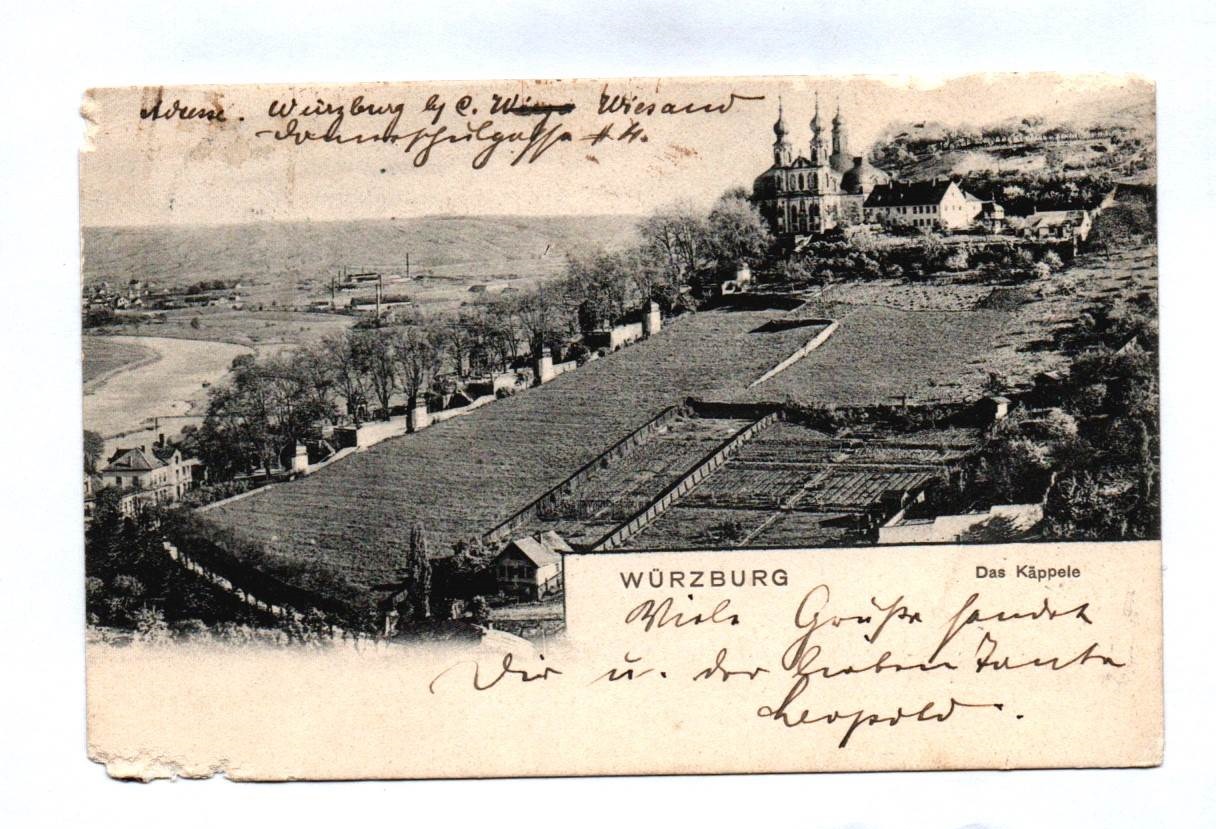 Adresse. Würzburg bei C. Wiesand
Domerschulgasse # 4.
WÜRZBURG
Das Käppele
Viele Grüße sendet
Dir u. der lieben Tante
Leopold.